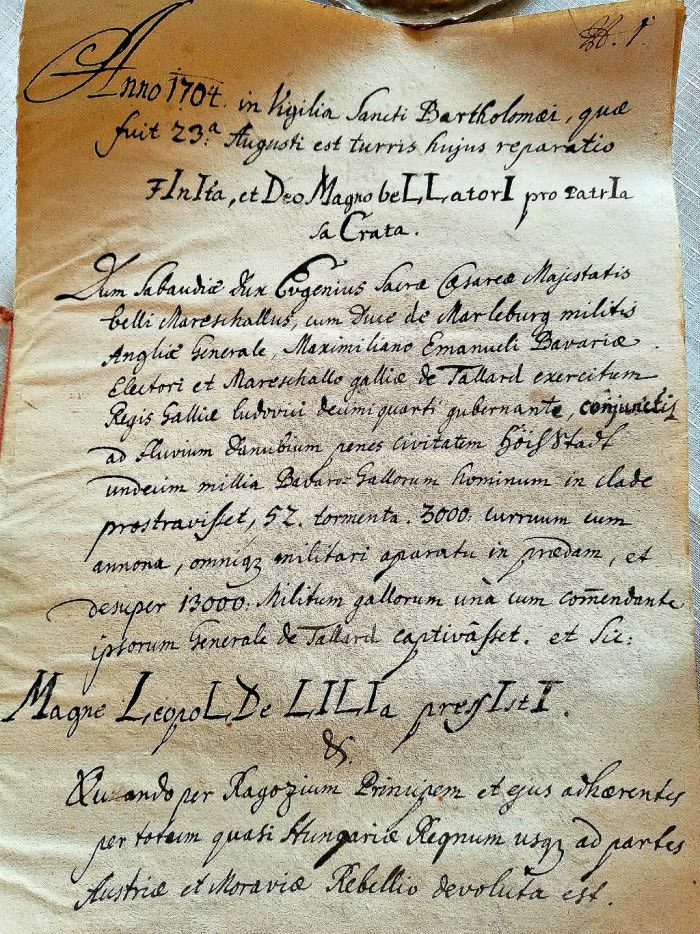 Anno 1704. in Vigilia Sancti Bartholomæi, quæ
fuit 23ª Augusti est turris hujus reparatio
FInIta, et Deo Magno beLLatorI pro PatrIa
saCrata.
Dum Sabaudiæ Dux Eugenius Sacræ Cæsareæ Majestatis
belli Mareschallus, cum Duce de Marleburg militis
Angliæ Generale, Maximiliano Emanueli Bavariæ
Electori et Mareschallo galliæ de Tallard exercitum
Regis Galliæ ludovici decimi quarti gubernante, conjunctis
ad fluvium Danubium penes civitatem Höißstadt
undecim millia Bavaro-Gallorum hominum in clade
prostravisset, 52. tormenta. 3000. curruum cum
annona, omniqꝫ militari aparatu in prædam, et
desuper 13000: Militum gallorum unà cum com̃endante
ipsorum Generale de Tallard captivâsset. et Sic:
Magne LeopoLDe LILIa pressIstI.
&.
Quando per Ragozium Principem et ejus adhærentes
per totum quasi Hungariæ Regnum usqꝫ ad partes
Austriæ et Moraviæ Rebellio devoluta est.